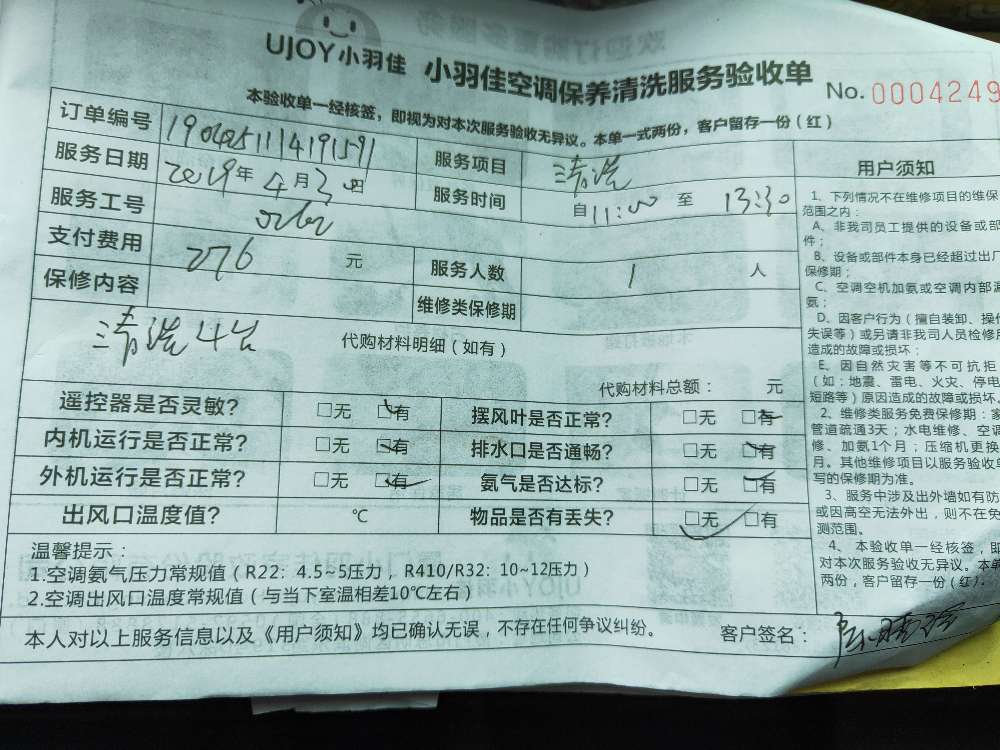 UJOY小羽佳 小羽佳空调保养清洗服务验收单 No. 0004249
本验收单一经核签，即视为对本次服务验收无异议。本单一式两份，客户留存一份（红）
订单编号 服务项目 清洗
服务日期 2019年4月 日 服务时间 自11:00至13:30
服务工号
支付费用 276 元 服务人数 1 人
保修内容 维修类保修期
清洗4台
代购材料明细（如有）
代购材料总额： 元
遥控器是否灵敏? □无 □有 摆风叶是否正常? □无 □有
内机运行是否正常? □无 □有 排水口是否通畅? □无 □有
外机运行是否正常? □无 □有 氨气是否达标? □无 □有
出风口温度值? ℃ 物品是否有丢失? □无 □有
温馨提示：
1.空调氨气压力常规值（R22：4.5~5压力，R410/R32：10~12压力）
2.空调出风口温度常规值（与当下室温相差10℃左右）
本人对以上服务信息以及《用户须知》均已确认无误，不存在任何争议纠纷。 客户签名：
用户须知
1、下列情况不在维修项目的维保
范围之内：
A、非我司员工提供的设备或部
件；
B、设备或部件本身已经超过出厂
保修期；
C、空调空机加氨或空调内部漏
氨；
D、因客户行为（擅自装卸、操作
失误等）或另请非我司人员检修所
造成的故障或损坏；
E、因自然灾害等不可抗拒
（如；地震、雷电、火灾、停电
短路等）原因造成的故障或损坏。
2、维修类服务免费保修期：家
管道疏通3天；水电维修、空调
修、加氨1个月；压缩机更换
月。其他维修项目以服务验收单
写的保修期为准。
3、服务中涉及出外墙如有防
或因高空无法外出，则不在免
测范围。
4、本验收单一经核签，即
对本次服务验收无异议。本单
两份，客户留存一份（红）.